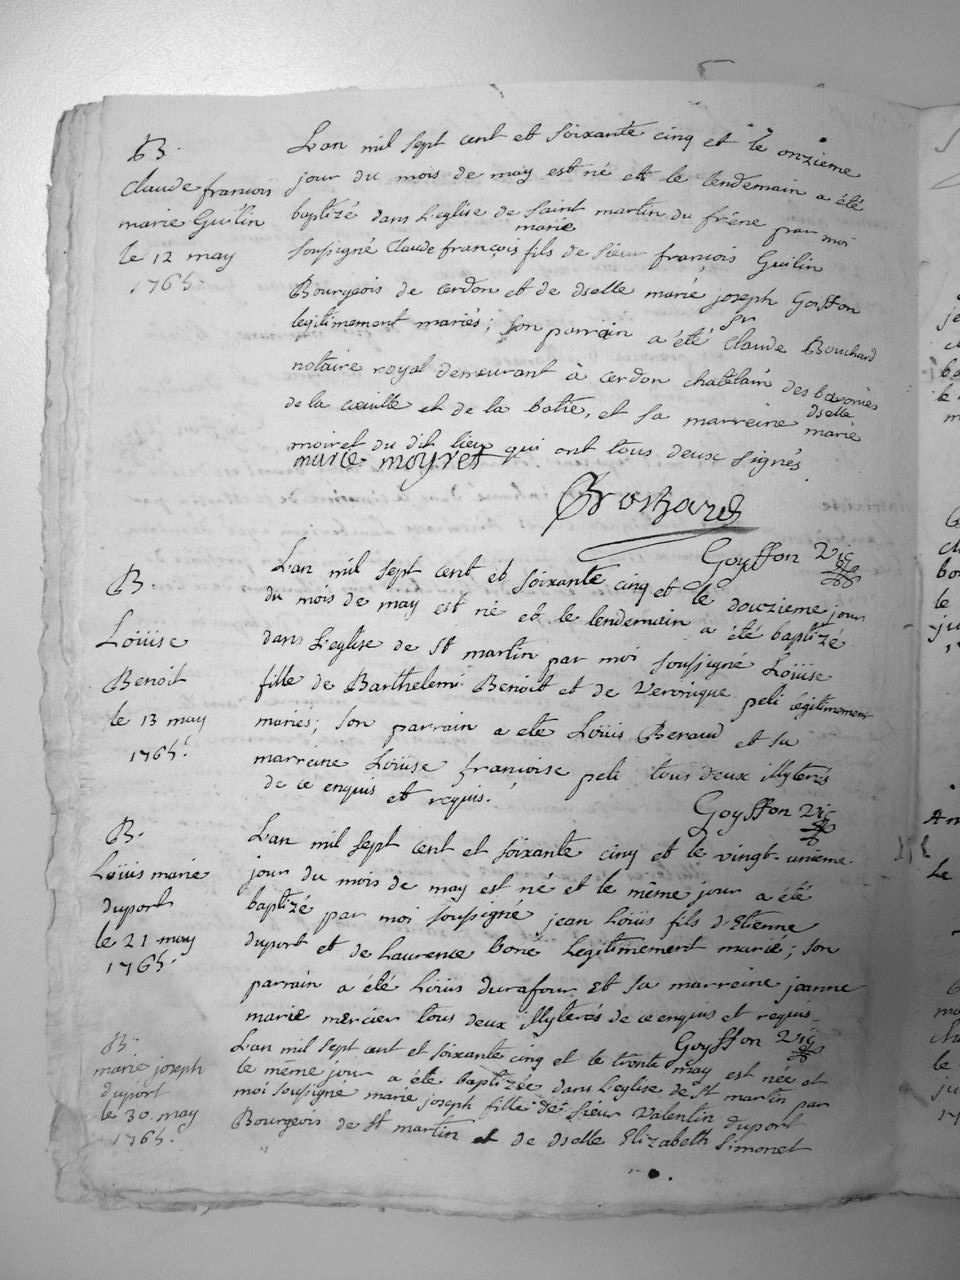 B.
Claude francois
marie Guilin
le 12 may
1765.
L'an mil sept cent et soixante cinq et le onzieme
jour du mois de may est né et le lendemain a été
baptizé dans L'eglise de saint martin du frêne par moi
marie
soussigné Claude françois fils de sieur françois Guilin
Bourgeois de cerdon et de dselle marie joseph Goyffon
legitimement mariés; son parrain a été sr Claude Bouchard
notaire royal demeurant à cerdon chatelain des baronies
de la cueille et de la batie, et sa marreine dselle marie
moiret du dit lieu qui ont tous deux signés
marie moyret
Goyffon Vic
B.
Loüise
Benoit
le 13 may
1765.
L'an mil sept cent et soixante cinq et le douzieme jour
du mois de may est né et le lendemain a été baptizé
dans L'eglise de st martin par moi soussigné Loüise
fille de Barthelemi Benoit et de Veronique peli légitimement
mariés; son parrain a ete Loüis Beraud et sa
marreine Loüise francoise peli tous deux illyterés
de ce enquis et requis.
Goyffon Vic
B.
Loüis marie
duport
le 21 may
1765.
L'an mil sept cent et soixante cinq et le vingt-unieme
jour du mois de may est né et le même jour a été
baptizé par moi soussigné jean Loüis fils d'Etienne
duport et de Laurence boné legitimement marié; son
parrain a été Loüis durafour et sa marreine jeanne
marie mercier tous deux illyterés de ce enquis et requis.
Goyffon Vic
B.
marie joseph
duport
le 30 may
1765.
L'an mil sept cent et soixante cinq et le trente may est née et
le même jour a été baptizée dans L'eglise de st martin par
moi soussigné marie joseph fille de sieur Valentin duport
Bourgeois de st martin et de dselle Elizabeth simonet